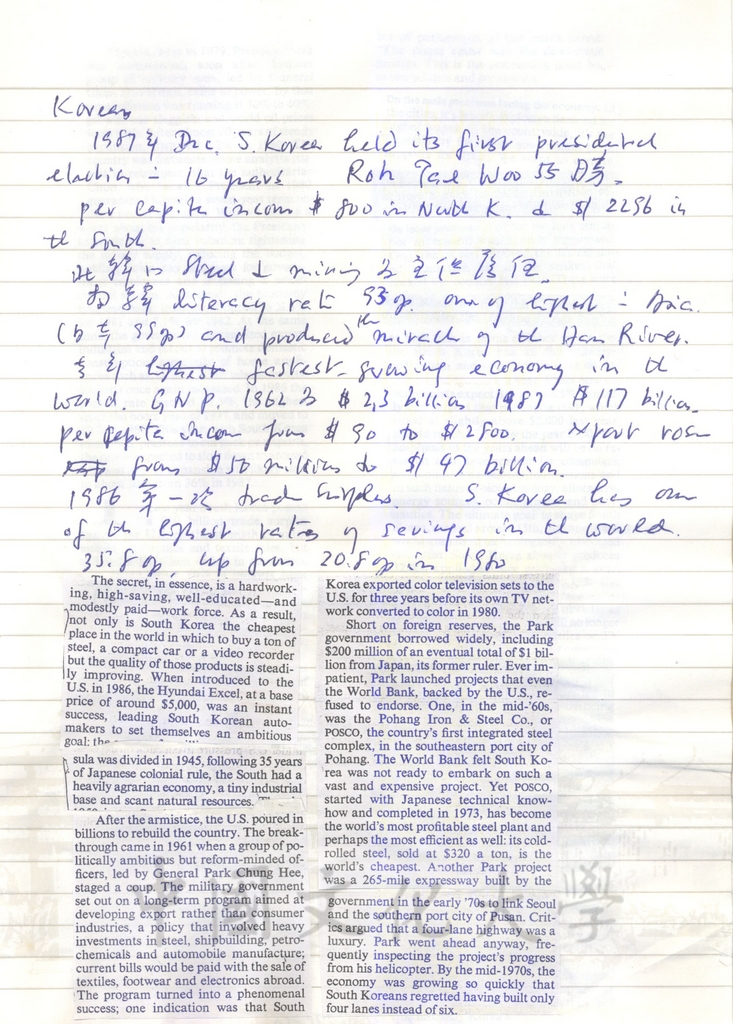 Korean
1987年 Dec. S. Korea held its first presidential
election = 16 years Roh Tae Woo 55
per capita income $ 800 in North K. & $ 2296 in
th South.
steel & mining
literacy rate 95 one of highest = Asia.
and produced th miracle of th Han River.
fastest-growing economy in th
world. G.N.P. 1962 $ 2,3 billion 1987 $ 117 billion.
per capita income from $ 90 to $ 2800. export rose
from $ 50 millions to $ 47 billion.
1986 第一次 trade surplus. S. Korea has one
of th highest rates of savings in th world.
35.8 up from 20.8 in 1980
The secret, in essence, is a hardwork-
ing, high-saving, well-educated—and
modestly paid—work force. As a result,
not only is South Korea the cheapest
place in the world in which to buy a ton of
steel, a compact car or a video recorder
but the quality of those products is steadi-
ly improving. When introduced to the
U.S. in 1986, the Hyundai Excel, at a base
price of around $5,000, was an instant
success, leading South Korean auto-
makers to set themselves an ambitious
goal: the
sula was divided in 1945, following 35 years
of Japanese colonial rule, the South had a
heavily agrarian economy, a tiny industrial
base and scant natural resources.
After the armistice, the U.S. poured in
billions to rebuild the country. The break-
through came in 1961 when a group of po-
litically ambitious but reform-minded of-
ficers, led by General Park Chung Hee,
staged a coup. The military government
set out on a long-term program aimed at
developing export rather than consumer
industries, a policy that involved heavy
investments in steel, shipbuilding, petro-
chemicals and automobile manufacture;
current bills would be paid with the sale of
textiles, footwear and electronics abroad.
The program turned into a phenomenal
success; one indication was that South
Korea exported color television sets to the
U.S. for three years before its own TV net-
work converted to color in 1980.
Short on foreign reserves, the Park
government borrowed widely, including
$200 million of an eventual total of $1 bil-
lion from Japan, its former ruler. Ever im-
patient, Park launched projects that even
the World Bank, backed by the U.S., re-
fused to endorse. One, in the mid-'60s,
was the Pohang Iron & Steel Co., or
POSCO, the country's first integrated steel
complex, in the southeastern port city of
Pohang. The World Bank felt South Ko-
rea was not ready to embark on such a
vast and expensive project. Yet POSCO,
started with Japanese technical know-
how and completed in 1973, has become
the world's most profitable steel plant and
perhaps the most efficient as well: its cold-
rolled steel, sold at $320 a ton, is the
world's cheapest. Another Park project
was a 265-mile expressway built by the
government in the early '70s to link Seoul
and the southern port city of Pusan. Crit-
ics argued that a four-lane highway was a
luxury. Park went ahead anyway, fre-
quently inspecting the project's progress
from his helicopter. By the mid-1970s, the
economy was growing so quickly that
South Koreans regretted having built only
four lanes instead of six.
中國文化大學